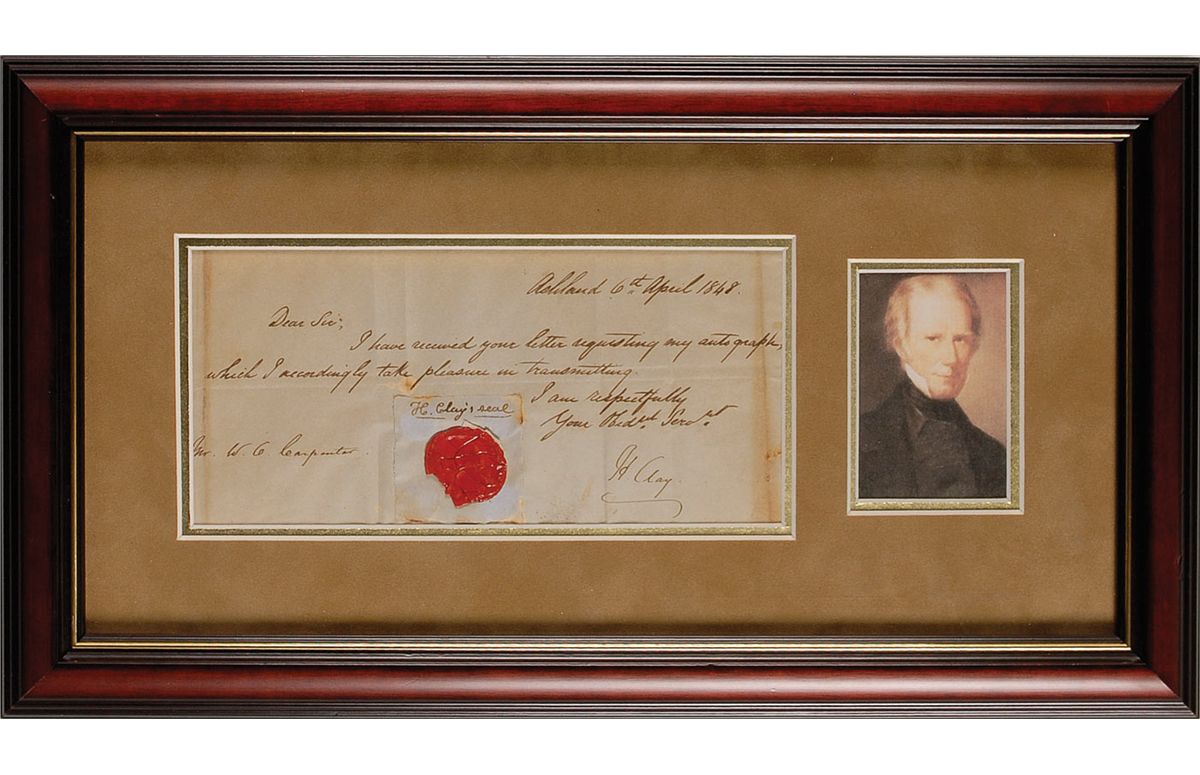 Ashland 6th April 1848.
Dear Sir;
I have received your letter requesting my autograph,
which I accordingly take pleasure in transmitting.
I am respectfully
Your Obdt. Servt.
H. Clay's seal
Mr. W. C. Carpenter.
H Clay.